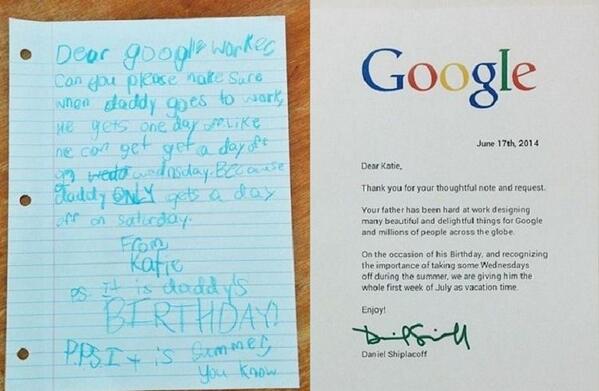 Dear google worker,
Can you please make sure
when daddy goes to work,
He gets one day off. Like
he can get get a day off
on wedo wednesday. Because
daddy ONLY gets a day
off on saturday.
From,
Katie
P.S. It is daddy's
BIRTHDAY!
P.P.S. It is summer,
you know
Google
June 17th, 2014
Dear Katie,
Thank you for your thoughtful note and request.
Your father has been hard at work designing
many beautiful and delightful things for Google
and millions of people across the globe.
On the occasion of his Birthday, and recognizing
the importance of taking some Wednesdays
off during the summer, we are giving him the
whole first week of July as vacation time.
Enjoy!
Daniel Shiplacoff